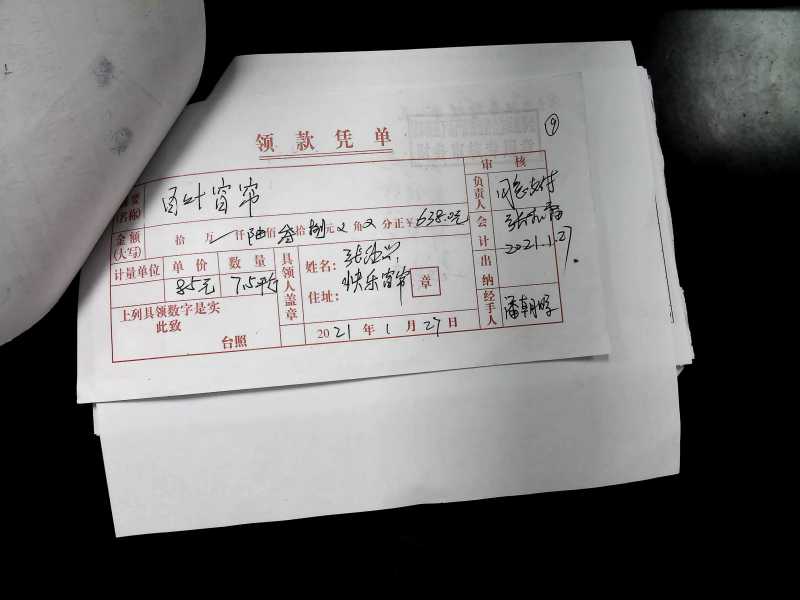 ⑨
领款凭单
审核
摘要(名称) 百叶窗帘
金额(大写) 拾 万 仟 陆 佰 叁 拾 捌 元 角 分正 ¥ 638.0元
计量单位 单价 数量
85元 7.5平方
上列具领数字是实
此致
台照
具领人盖章
姓名:
住址: 快乐窗帘
章
2021年1月27日
负责人 同意支付
会计
2021.1.27.
出纳
经手人